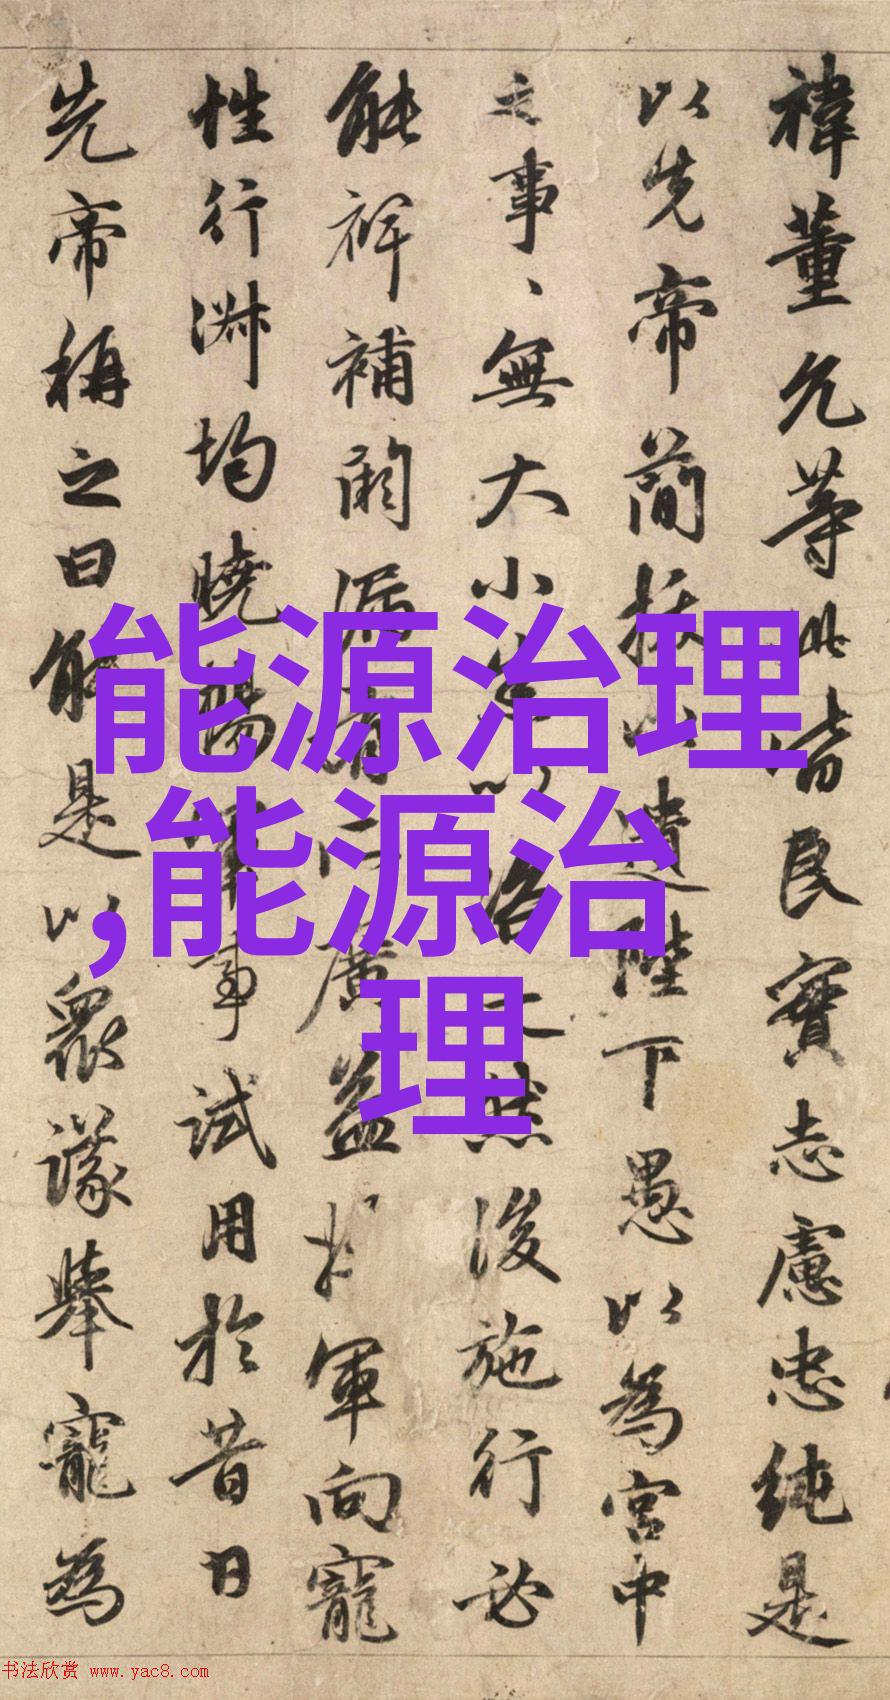 禕董允等此皆良實志慮忠純是
以先帝簡拔以遺陛下愚以為宮中
之事、無大小悉以咨之然後施行必
能裨補闕漏有所廣益將軍向寵
性行淑均曉暢軍事試用於昔日
先帝稱之曰能是以眾議舉寵為
能源治理
,能源治
理
书法欣赏 www.yac8.com